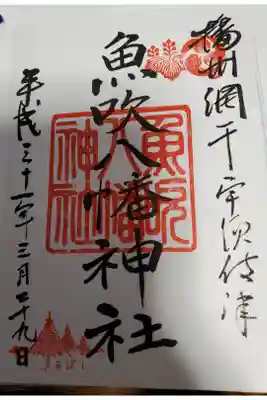 播州網干宇須伎津
魚吹八幡神社
平成三十一年三月二十九日
魚吹
八幡
神社